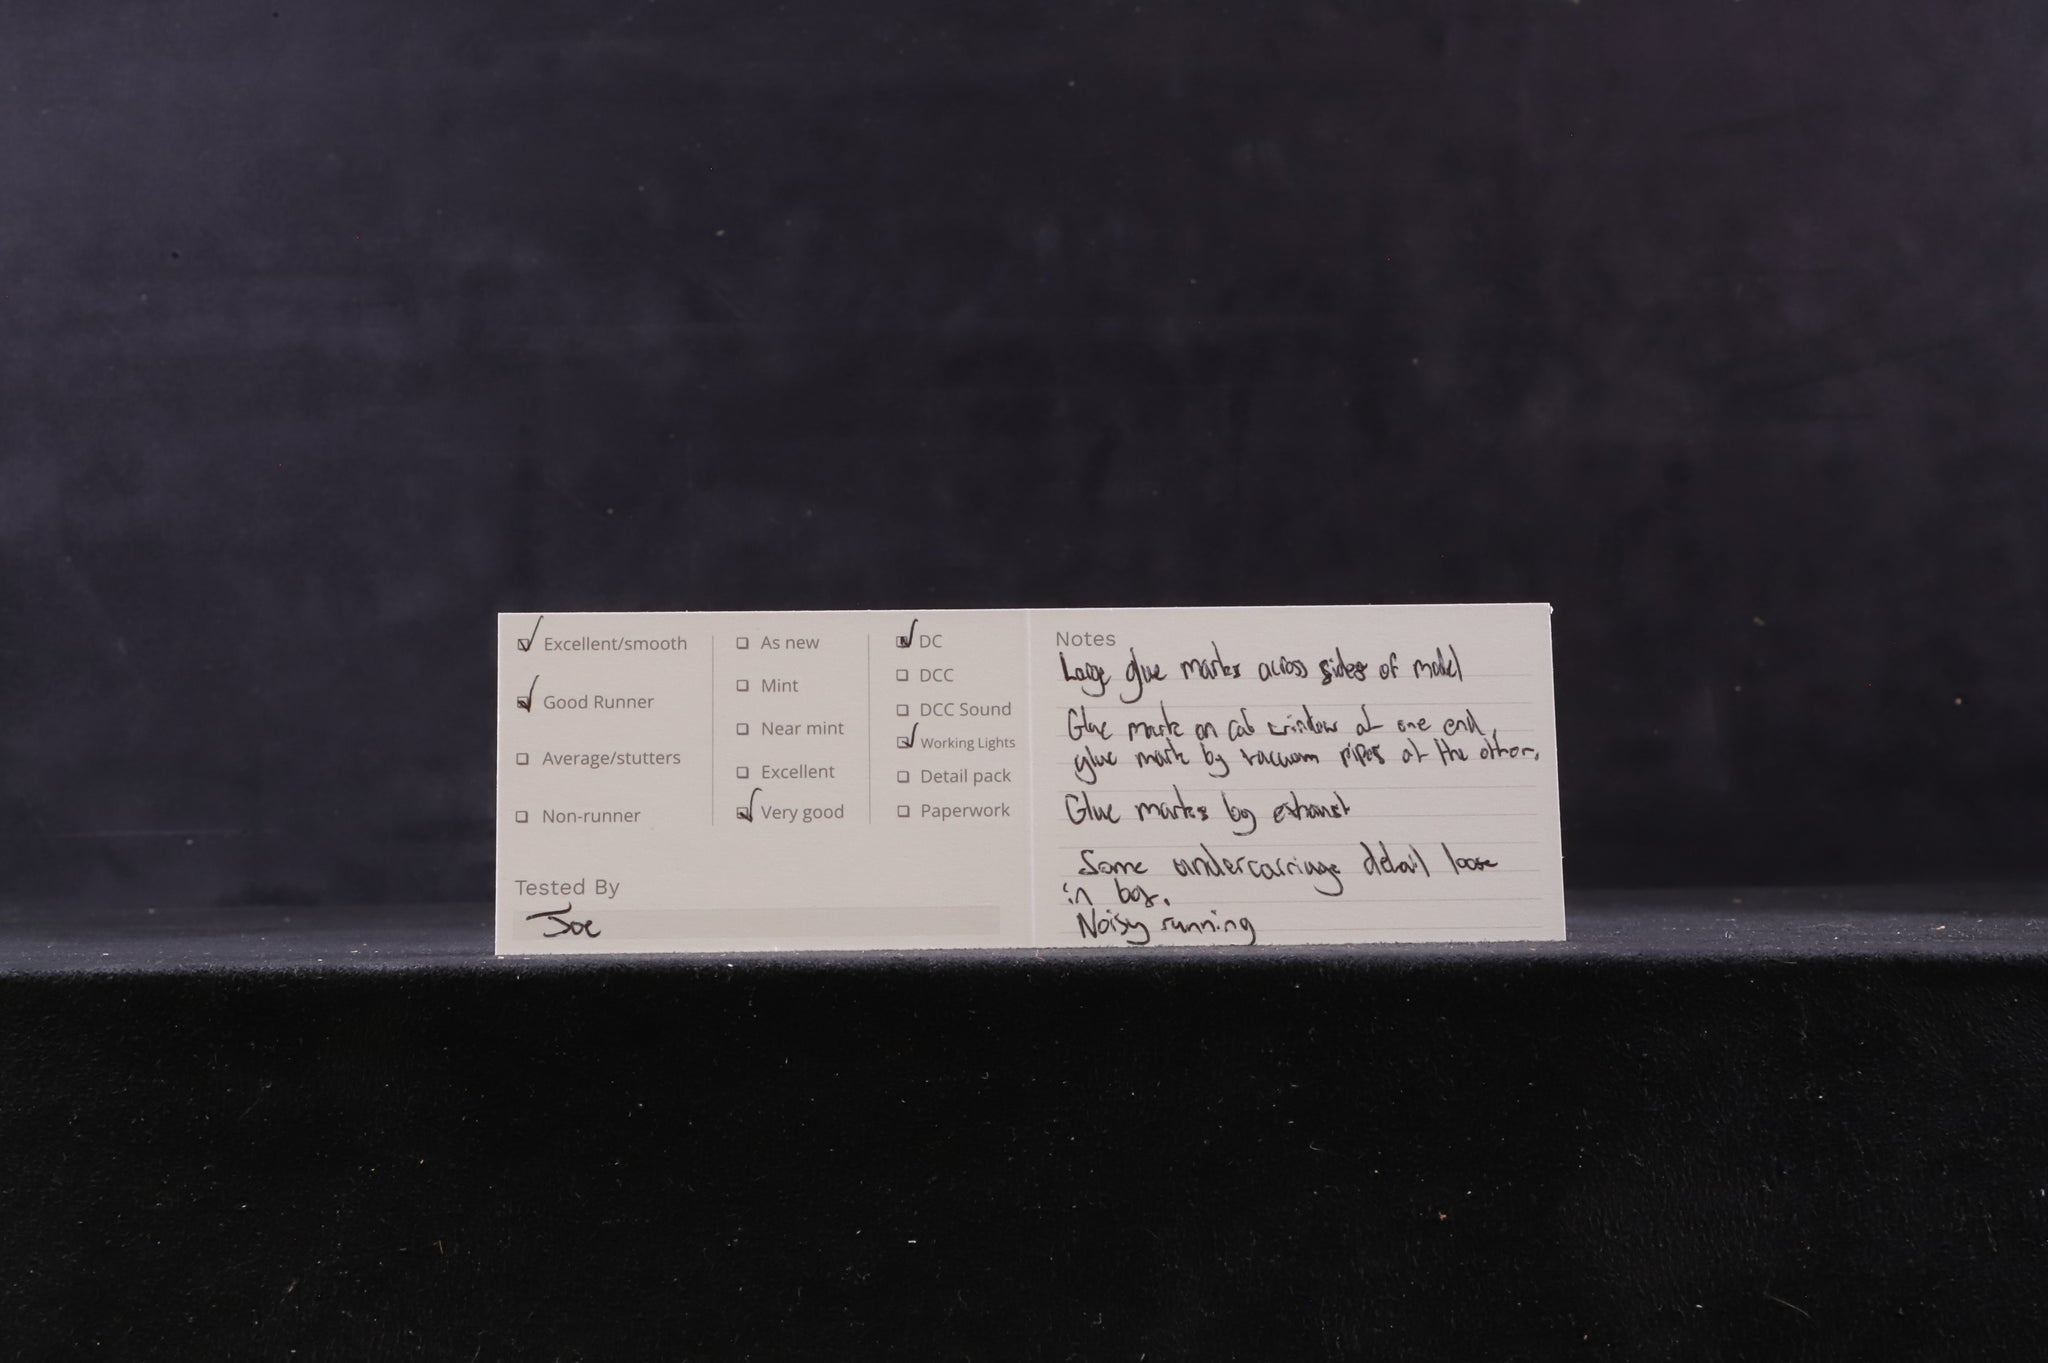 Excellent/smooth
Good Runner
Average/stutters
Non-runner
As new
Mint
Near mint
Excellent
Very good
DC
DCC
DCC Sound
Working Lights
Detail pack
Paperwork
Tested By
Joe
Notes
Large glue marks across sides of model
Glue mark on cab window at one end,
glue mark by vacuum pipes at the other.
Glue marks by exhaust
Some undercarriage detail loose
in box.
Noisy running